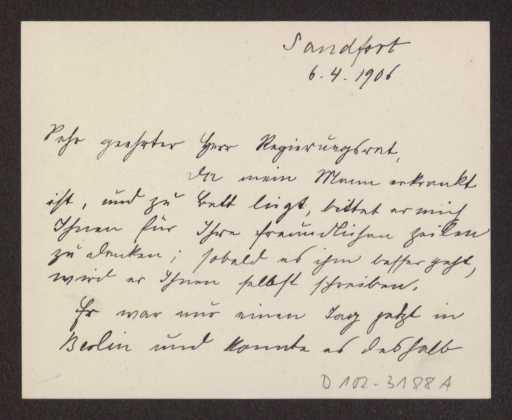 Sandfort
6.4.1906
Sehr geehrter Herr Regierungsrat,
Da mein Mann erkrankt
ist, und zu Bett liegt, bittet er mich
Ihnen für Ihre freundlichen Zeilen
zu danken; sobald es ihm besser geht,
wird er Ihnen selbst schreiben.
Er war nur einen Tag jetzt in
Berlin und konnte es deshalb
D 102-3188 A